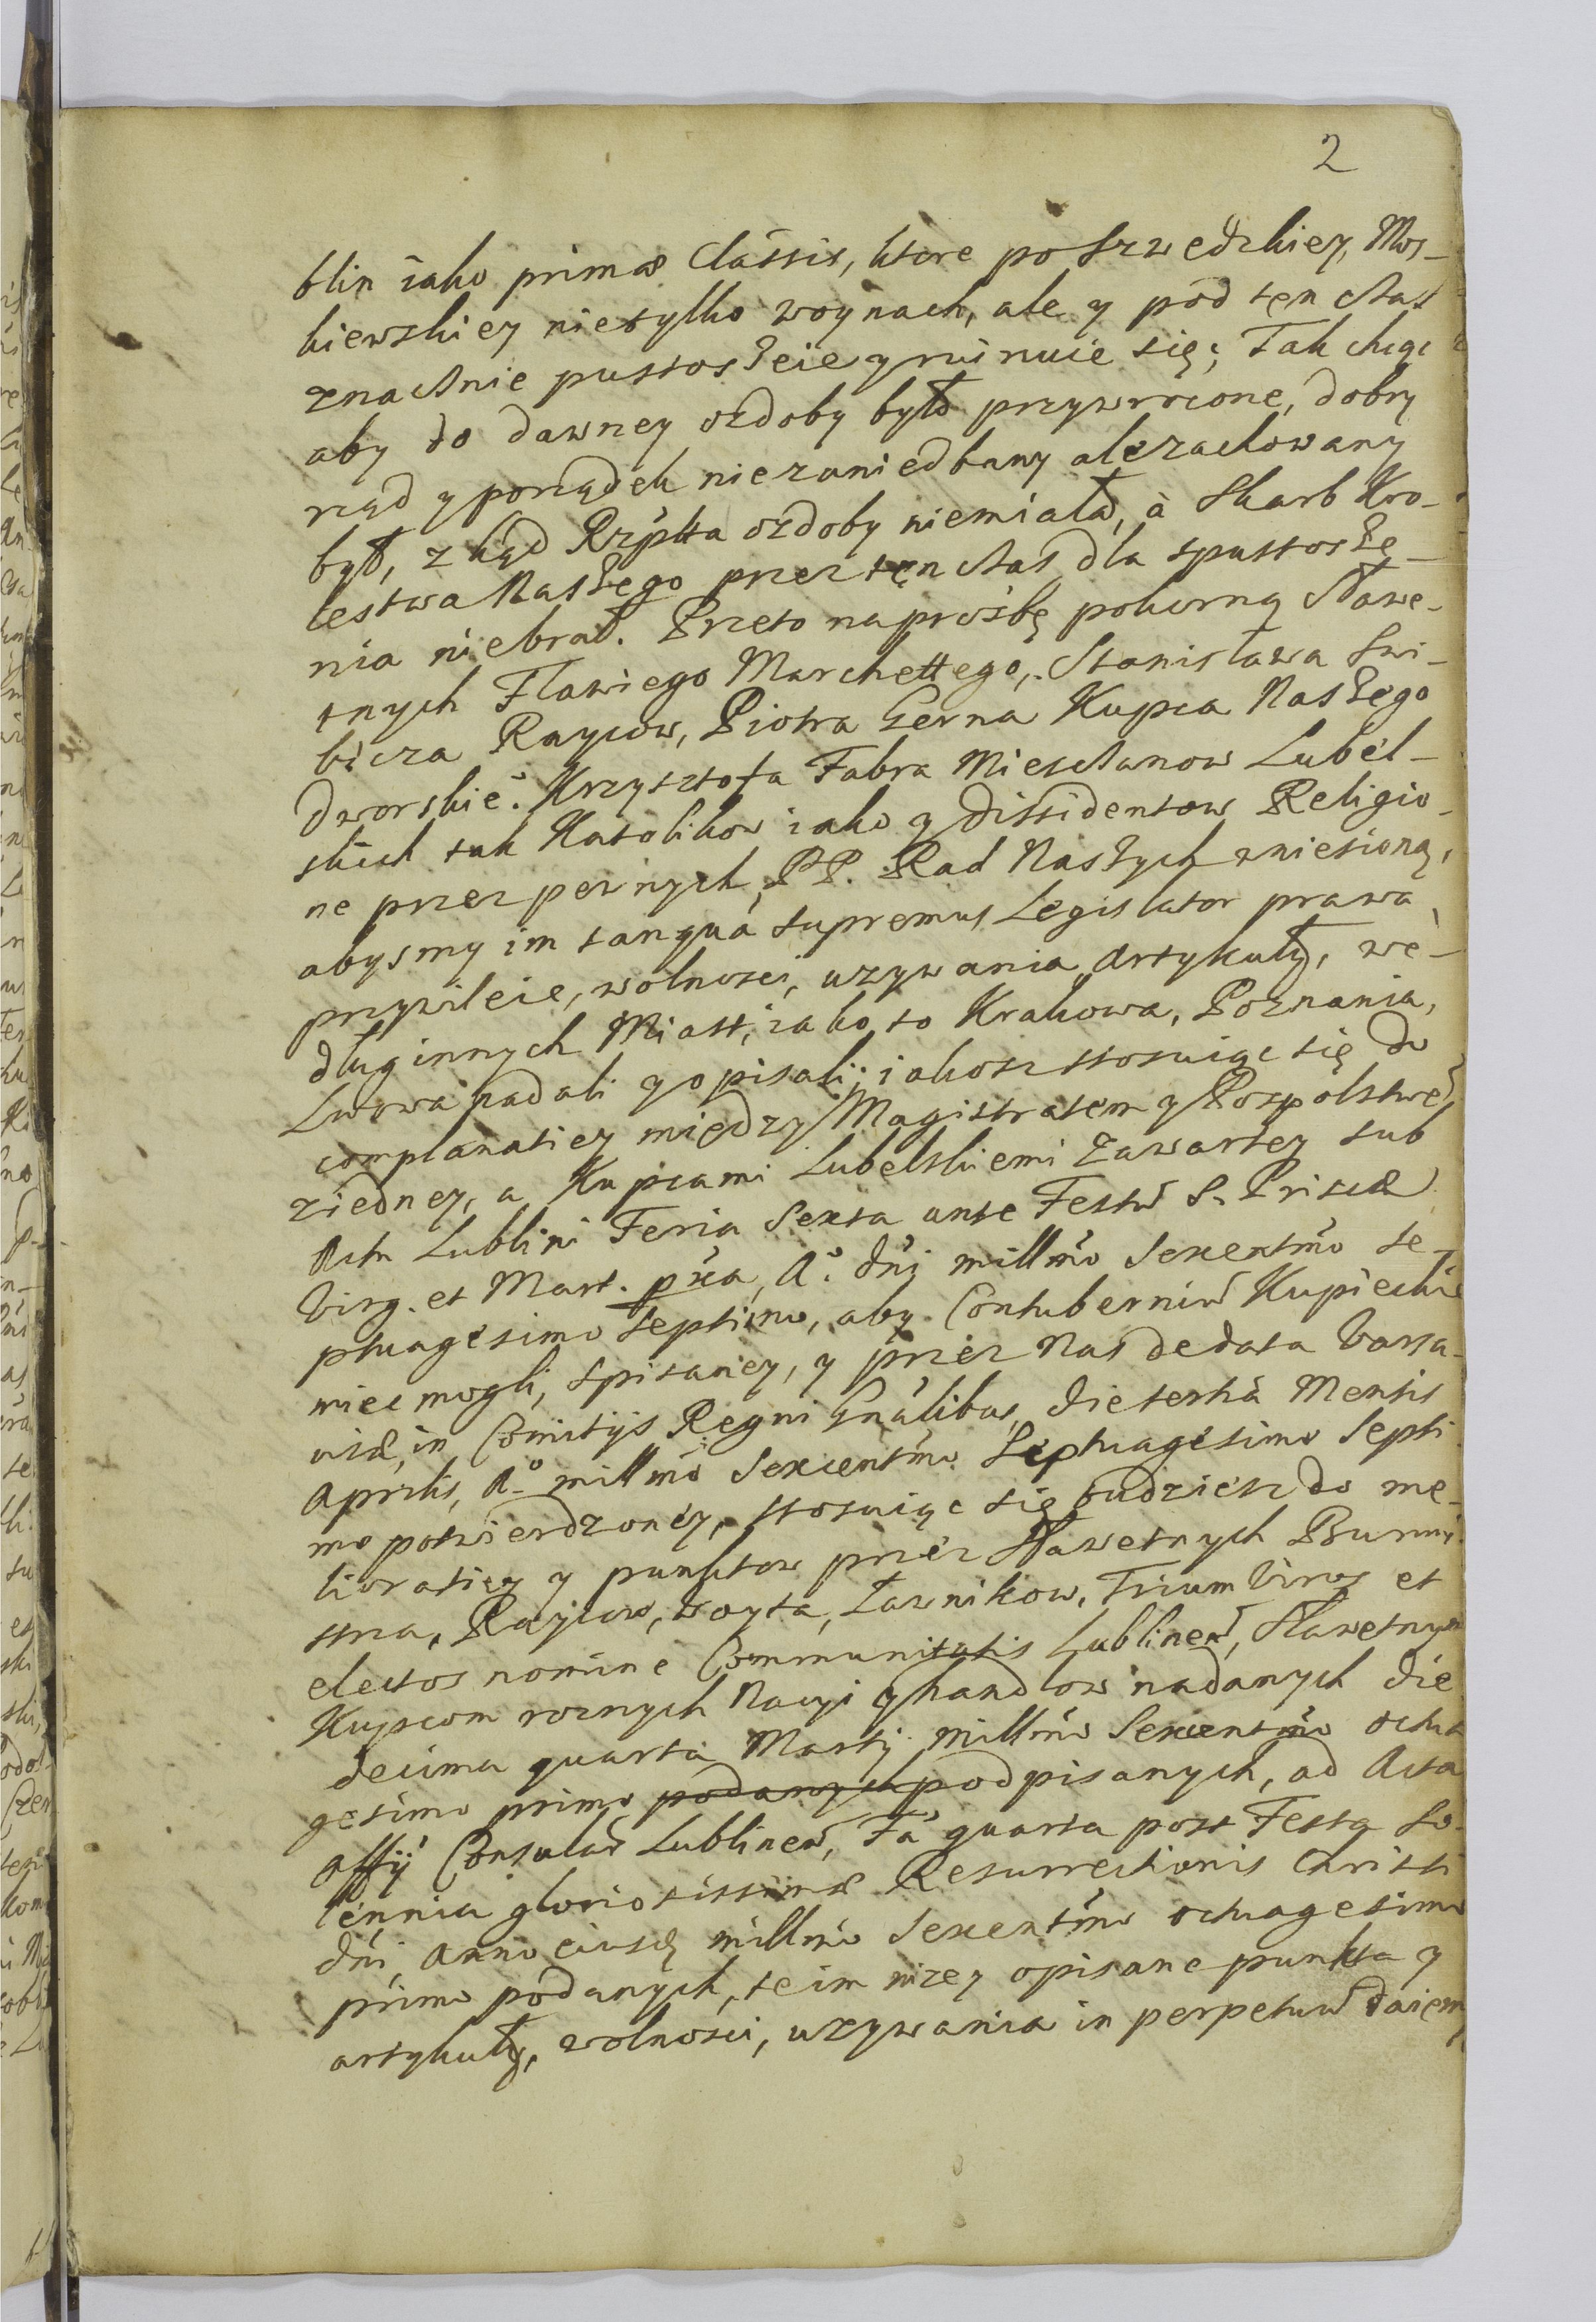 2
blin iako primæ Classis, ktore po Szwedzkiey, Mos-
kiewskiey nietylko woynach, ale y pod ten czas
znacznie pustoszeie y ruinuie się; Tak chcąc
aby do dawney ozdoby było przywrocone, dobry
rząd y porządek niezaniedbany ale zachowany
był, zkąd Rzpłta ozdoby niemiała, à Skarb Kro-
lestwa Naszego przez ten czas dla spustosze-
nia niebrał. Przeto na prośbę pokorną sławe-
tnych Flawiego Marchettego, Stanisława Swi-
bicza Raycow, Piotra Gerna Kupca Naszego
dworskie°. Krzysztofa Fabra Miesczanow Lubel-
skich tak Katolikow iako y dissidentow Religio-
ne przez pewnych PP. Rad Naszych wniesioną,
abysmy im tanquã supremus Legislator prawa,
przywileie, wolnosci, uzywania, artykuły, we-
dług innych Miast, iako to Krakowa, Poznania,
Lwowa nadali y opisali; iakosz stosuiąc się do
complanatiey między Magistratem y Pospolstwē
ziedney, a Kupcami Lubelskiemi zawartey sub
Actu Lublini Feria Sexta ante Festū S. Priscæ
Virg. et Mart. pxa, A°. dni millmo Sexentmo se-
ptuagesimo septimo, aby Contuberniū Kupieckie
miec mogli, spisaney, y przez Nas de data Varsa-
viæ, in Comitijs Regni Gnalibus, die tertiã Mensis
Aprilis, A° millmo Sexcentmo Septuagesimo Septi
mo potwierdzoney, stosuiąc się tudziesz do me-
lioratiey y punktow przez Sławetnych Burmi
strza, Raycow, Woyta, Ławnikow, Trium Viros et
electos nomine Communitatis Lublineñ, Sławetnym
Kupcom roznych Nacyi y handlow nadanych die
decima quarta Martij millmo Sexcentmo octua
gesimo primo podanych podpisanych, ad Acta
offij Consulař Lublineñ, Fã quarta post Festa So-
lennia gloriosissimæ Resurrectionis Christi
dni anno eiusdē millmo Sexentmo octuagesimo
primo podanych, te im nizey opisane punkta y
artykuły, wolnosci, uzywania in perpetuū daiemy